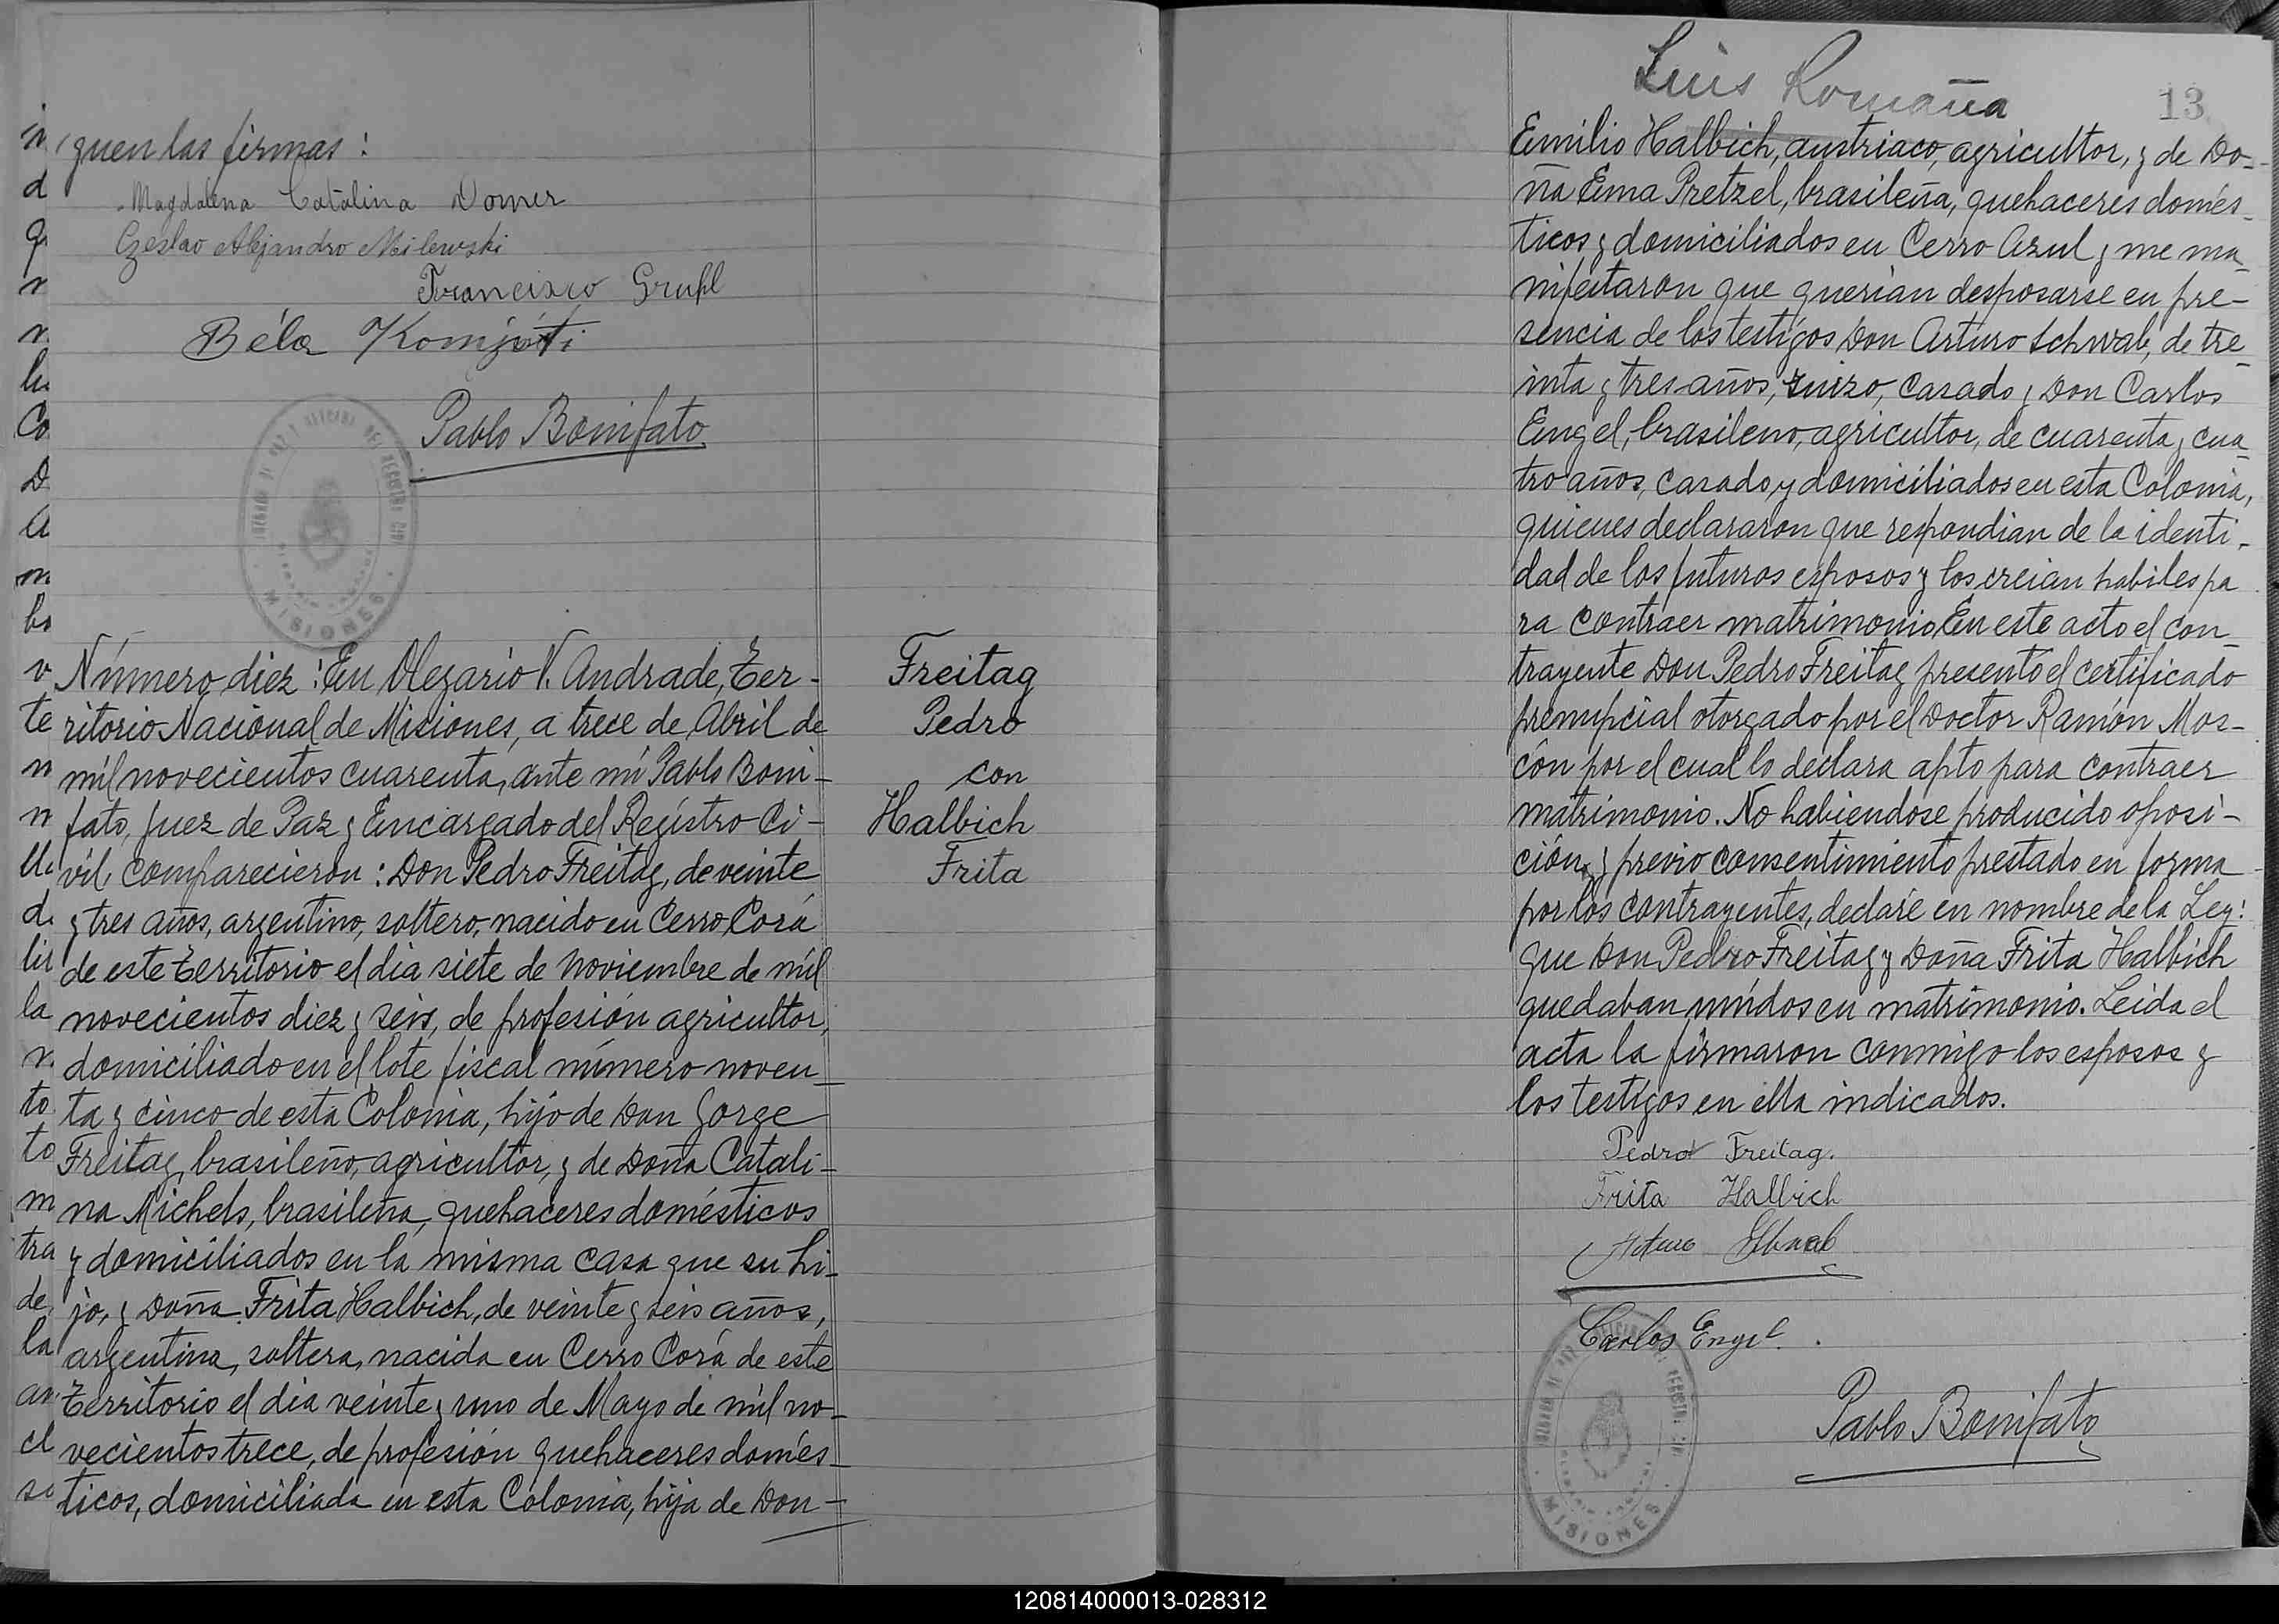 guen las firmas:
Magdalena Catalina Domer
Czeslao Alejandro Milewski
Francisco Grupl
Béla
Pablo Bonifato
MISIONES
Número diez: En Olegario V. Andrade, Ter-
ritorio Nacional de Misiones, a trece de Abril de
mil novecientos cuarenta, ante mí Pablo Boni-
fato, Juez de Paz y Encargado del Registro Ci-
vil, comparecieron: Don Pedro Freitag, de veinte
y tres años, argentino, soltero, nacido en Cerro Corá
de este Territorio el dia siete de Noviembre de mil
novecientos diez y seis, de profesión agricultor,
domiciliado en el lote fiscal número noven_
ta y cinco de esta Colonia, hijo de Don Jorge
Freitag, brasileño, agricultor, y de Doña Catali-
na Michels, brasileña, quehaceres domésticos
y domiciliados en la misma casa que su hi_
jo, y Doña Frita Halbich, de veinte y seis años,
argentina, soltera, nacida en Cerro Corá de este
Territorio el dia veinte y uno de Mayo de mil no_
vecientos trece, de profesión quehaceres domés_
ticos, domiciliada en esta Colonia, hija de Don-
Freitag
Pedro
con
Halbich
Frita
Luis Romaña
13
Emilio Halbich, austriaco, agricultor, y de Do-
ña Ema Pretzel, brasileña, quehaceres domés_
ticos y domiciliados en Cerro Azul y me ma_
nifestaron que querian desposarse en pre-
sencia de los testigos Don Arturo Schwab, de tre_
inta y tres años, suizo, casado y Don Carlos
Engel, brasileno, agricultor, de cuarenta y cua_
tro años, casado y domiciliados en esta Colonia,
quienes declararon que respondian de la identi-
dad de los futuros esposos y los creian habiles pa
ra contraer matrimonio. En este acto el con_
trayente Don Pedro Freitag presentó el certificado
prenupcial otorgado por el Doctor Ramón Mos-
cón por el cual lo declara apto para contraer
matrimonio. No habiendose producido oposi-
ción, y previo consentimiento prestado en forma
por los contrayentes, declaré en nombre de la Ley:
que Don Pedro Freitag y Doña Frita Halbich
quedaban unidos en matrimonio. Leida el
acta la firmaron conmigo los esposos y
los testigos en ella indicados.
Pedro Freitag.
Frita Halbich
Arturo Schwab
Carlos Engel.
Pablo Bonifato
MISIONES
120814000013-028312